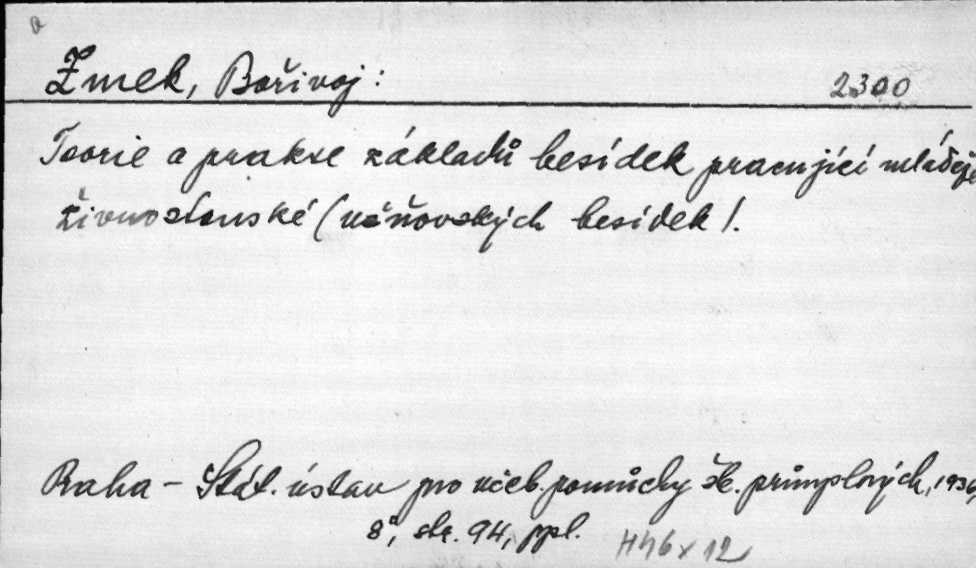 Žmek, Bořivoj:
2300
Teorie a prakse základů besídek pracující mládeže
živnostenské (učňovských besídek).
Praha - Stát. ústav pro učeb. pomůcky šk. průmyslových, 1936,
8°, str. 94, ppl.
H46 x 12